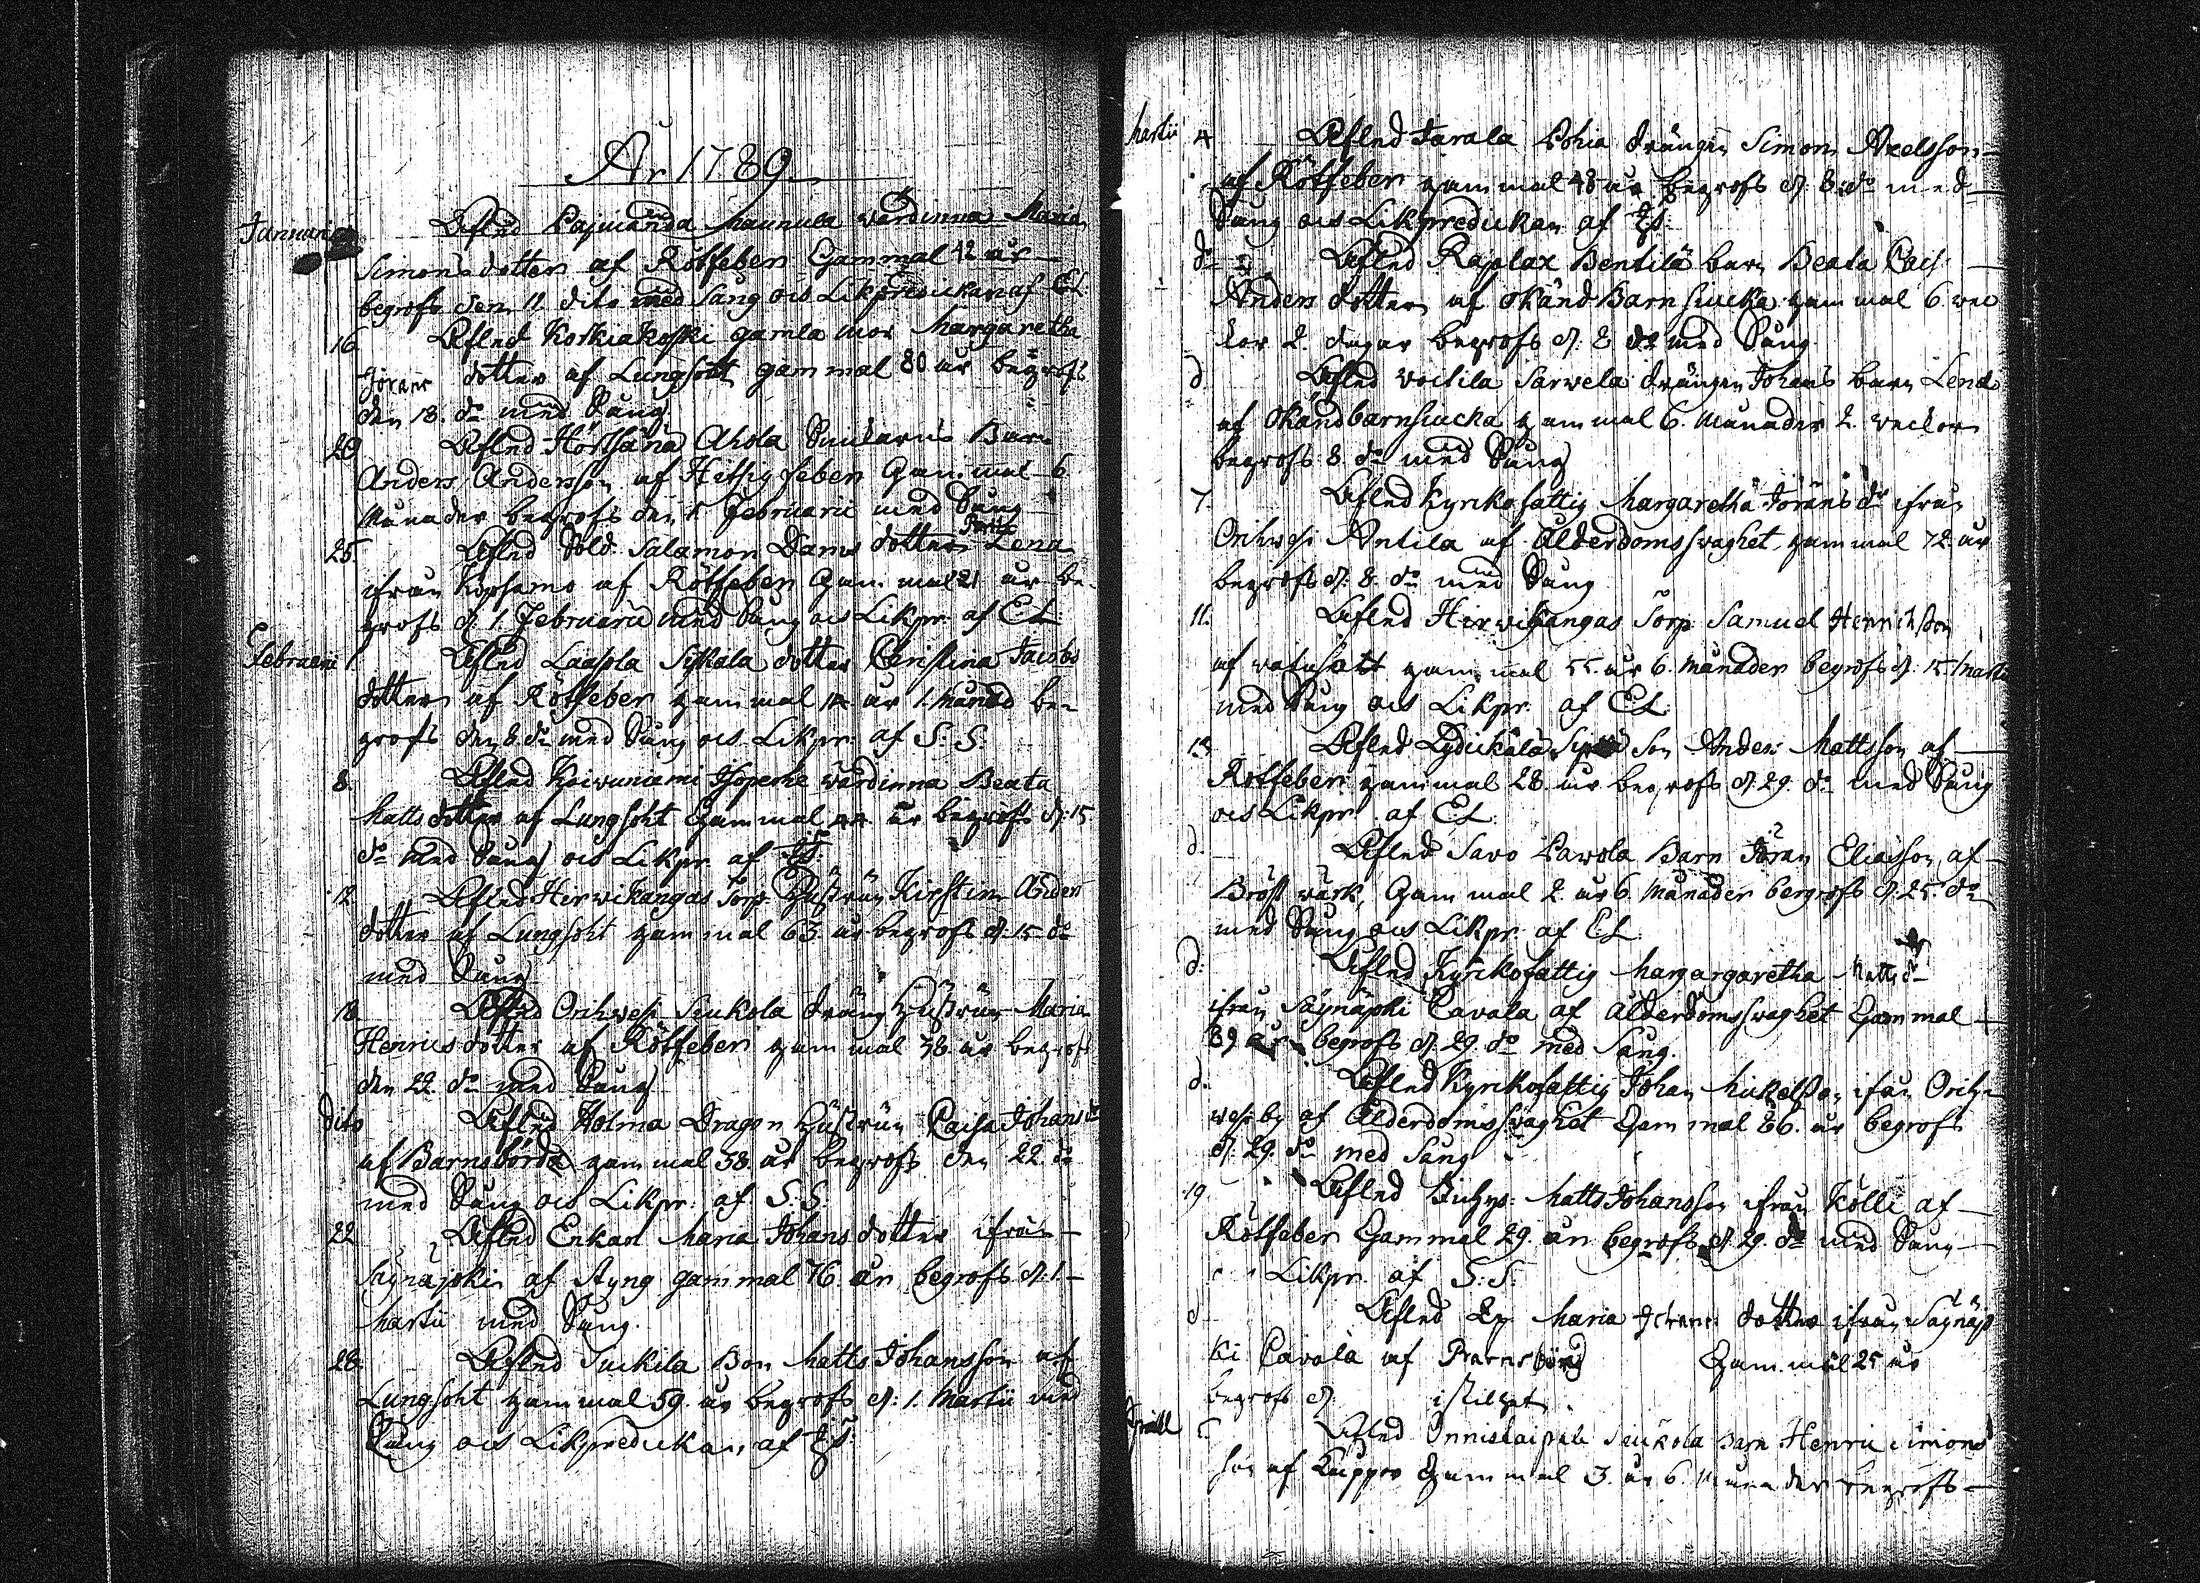 År 1789
Januarii Afled Pajuranda Maunula wärdinna Maria
Simonsdotter af Rötfeber Gammal 42 år
begrofs den 11 dito med Sång ock Likpredickan af EL
16. Afled Koskiakoski gamla mor Margaretha
Jörans dotter af Lungsott gammal 80 år begrofs
den 18. do med Sång
20 Afled Ahola Barn
Anders Andersson af Hetsig feber Gammal 6
Månader begrofs den 1 Februarii med Sång
25. Afled Sold. Salamon Dams dotter Lena
ifrån af Rötfeber Gammal 21 år be-
grofs d. 1 Februarii med Sång ock Likpr. af EL
Februarii 1. Afled Laasola Sipkala dotter Christina Jacobs
dotter af Rötfeber gammal 14 år 1. Månad be-
grofs den 8. do med Sång ock Likpr. af S. S.
8. Afled Koivuniemi wärdinna Beata
Matts dotter af Lungsoht Gammal 44 år begrofs d. 15
do med Sång ock Likpr. af
12 Afled Hirwikangas Torp. Hustrun Kirstin Anders
dotter af Lungsoht gammal 63 år begrofs d. 15 do
med Sång
18. Afled Orihwesi Seukola dräng Hustrun Maria
Henrics dotter af Rötfeber gammal 38 år begrofs
den 22. do med Sång
Dito Afled Holma Dragon Hustrun Caisa Johans dr
af Barnsbörd gammal 38. år begrofs den 22. do
med Sång ock Likpr. af S. S.
22 Afled Enkan Maria Johans dotter ifrån
Säynäjoki af Styng gammal 76 år begrofs d. 1
Martii med Sång.
28. Afled Tuckila Bon Matts Johansson af
Lungsoht gammal 59. år begrofs d: 1. Martii med
Sång ock Likpredickan, af
Martii 4 Afled Tarala Pohia drängen Simon Axelsson
af Rötfeber gammal 48 år begrofs d. 8 do med
Sång ock Likpredickan af
do Afled Rajalax Bentilä barn Beata Caisa
Anders dotter af okänd Barnsiucka gammal 6. wec
kor 2. dagar begrofs d: 8 do med Sång
d. Afled Sarwela drängen Johans barn Lena
af Okänd barnsiucka gammal 6. Månader 2. weckor
begrofs 8. do med Sång
7. Afled Kyrkofattig Margaretha Jörans dr ifrån
Orihwesi Antila af Ålderdomsswaghet, gammal 72. år
begrofs d: 8. do med Sång
11. Afled Hirwikangas Torp Samuel Henrichsson
af watusott gammal 55. år 6. månader begrofs d. 15. Martii
med Sång ock Likpr. af EL
13. Afled Lydickälä Son Anders Mattsson af
Rötfeber gammal 28. år begrofs d. 29. do med Sång
ock Likpr. af EL
d. Afled Savo Pawola Barn Jöran Eliasson af
Bröst wärk, Gammal 2. år 6. Månader begrofs d. 25. do
med Sång ock Likpr. af EL
d: Afled Kyrkofattig Margargaretha Matts dr
ifrån Säynäjoki Cavala af Ålderdomsswaghet Gammal
89 år begrofs d. 29. do med Sång.
d. Afled Kyrkofattig Johan Mickelson ifrån Orih
wesi by af Ålderdomsswaghet Gammal 86. år begrofs
d: 29. do med Sång
19. Afled Matts Johansson ifrån Kölli af
Rötfeber Gammal 29. år begrofs d. 29. do med Sång
Likpr. af S. S.
d Afled Maria Johans dotter ifrån Säynäjo
ki Cavala af Barnsbörd Gammal 25 år
begrofs d. i stillhet.
Aprill Afled Seukola Barn Henric Simons
son af Kuppor Gammal 3. år 6. Månader begrofs